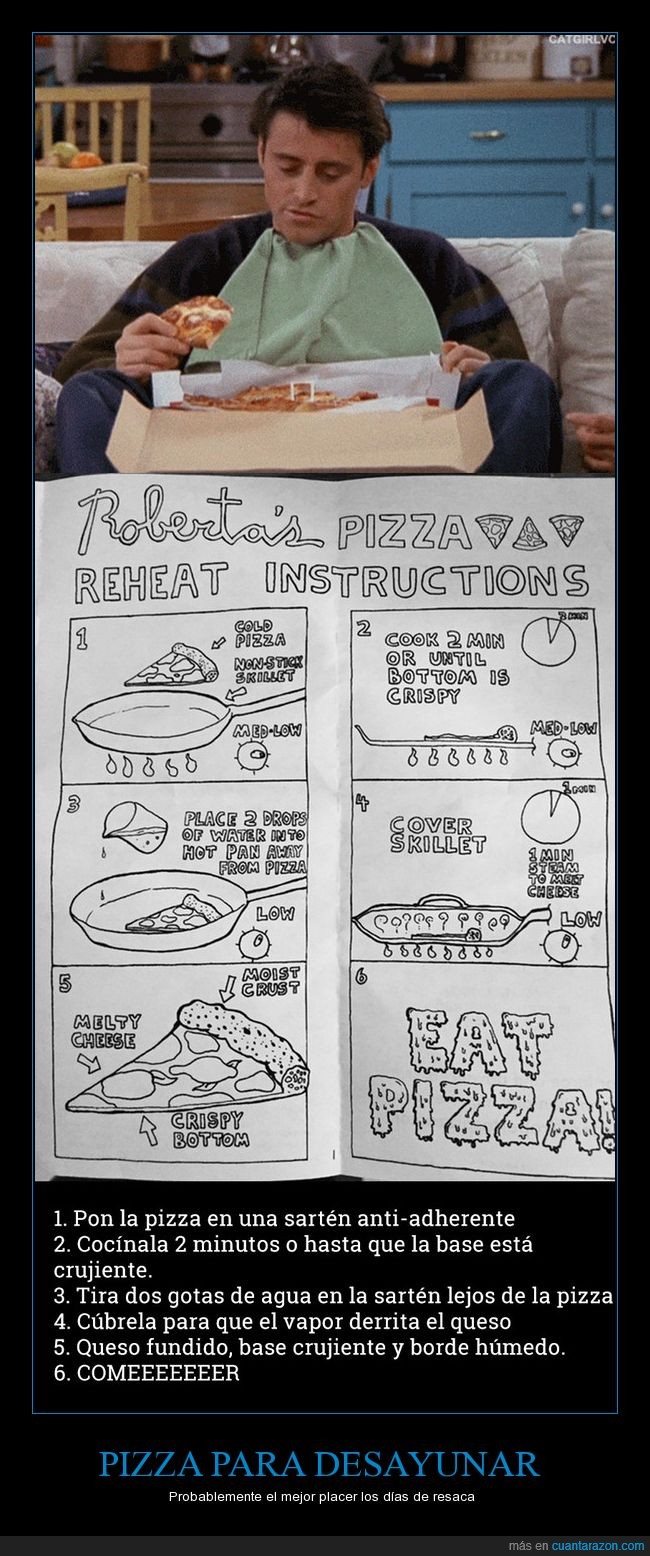 CATGIRLVC
Roberta's PIZZA
REHEAT INSTRUCTIONS
1
COLD
PIZZA
NON-STICK
SKILLET
MED-LOW
2
2 MIN
COOK 2 MIN
OR UNTIL
BOTTOM IS
CRISPY
MED-LOW
3
PLACE 2 DROPS
OF WATER INTO
HOT PAN AWAY
FROM PIZZA
LOW
4
1 MIN
COVER
SKILLET
1 MIN
STEAM
TO MELT
CHEESE
LOW
5
MOIST
CRUST
MELTY
CHEESE
CRISPY
BOTTOM
6
EAT
PIZZA!
1. Pon la pizza en una sartén anti-adherente
2. Cocínala 2 minutos o hasta que la base está
crujiente.
3. Tira dos gotas de agua en la sartén lejos de la pizza
4. Cúbrela para que el vapor derrita el queso
5. Queso fundido, base crujiente y borde húmedo.
6. COMEEEEEEER
PIZZA PARA DESAYUNAR
Probablemente el mejor placer los días de resaca
más en cuantarazon.com